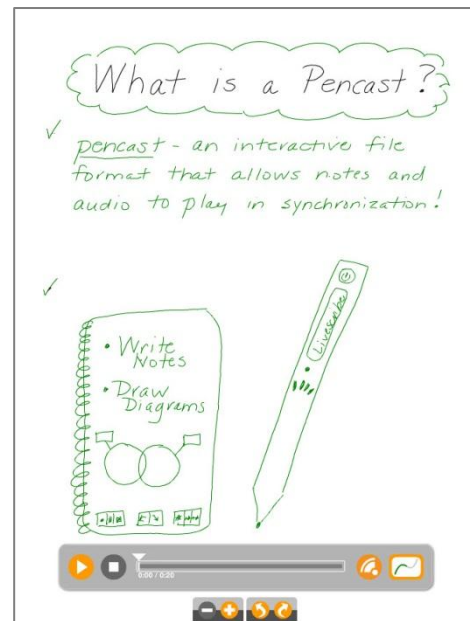 What is a Pencast?
pencast - an interactive file
format that allows notes and
audio to play in synchronization!
• Write
Notes
• Draw
Diagrams
Livescribe
0:00 / 0:20